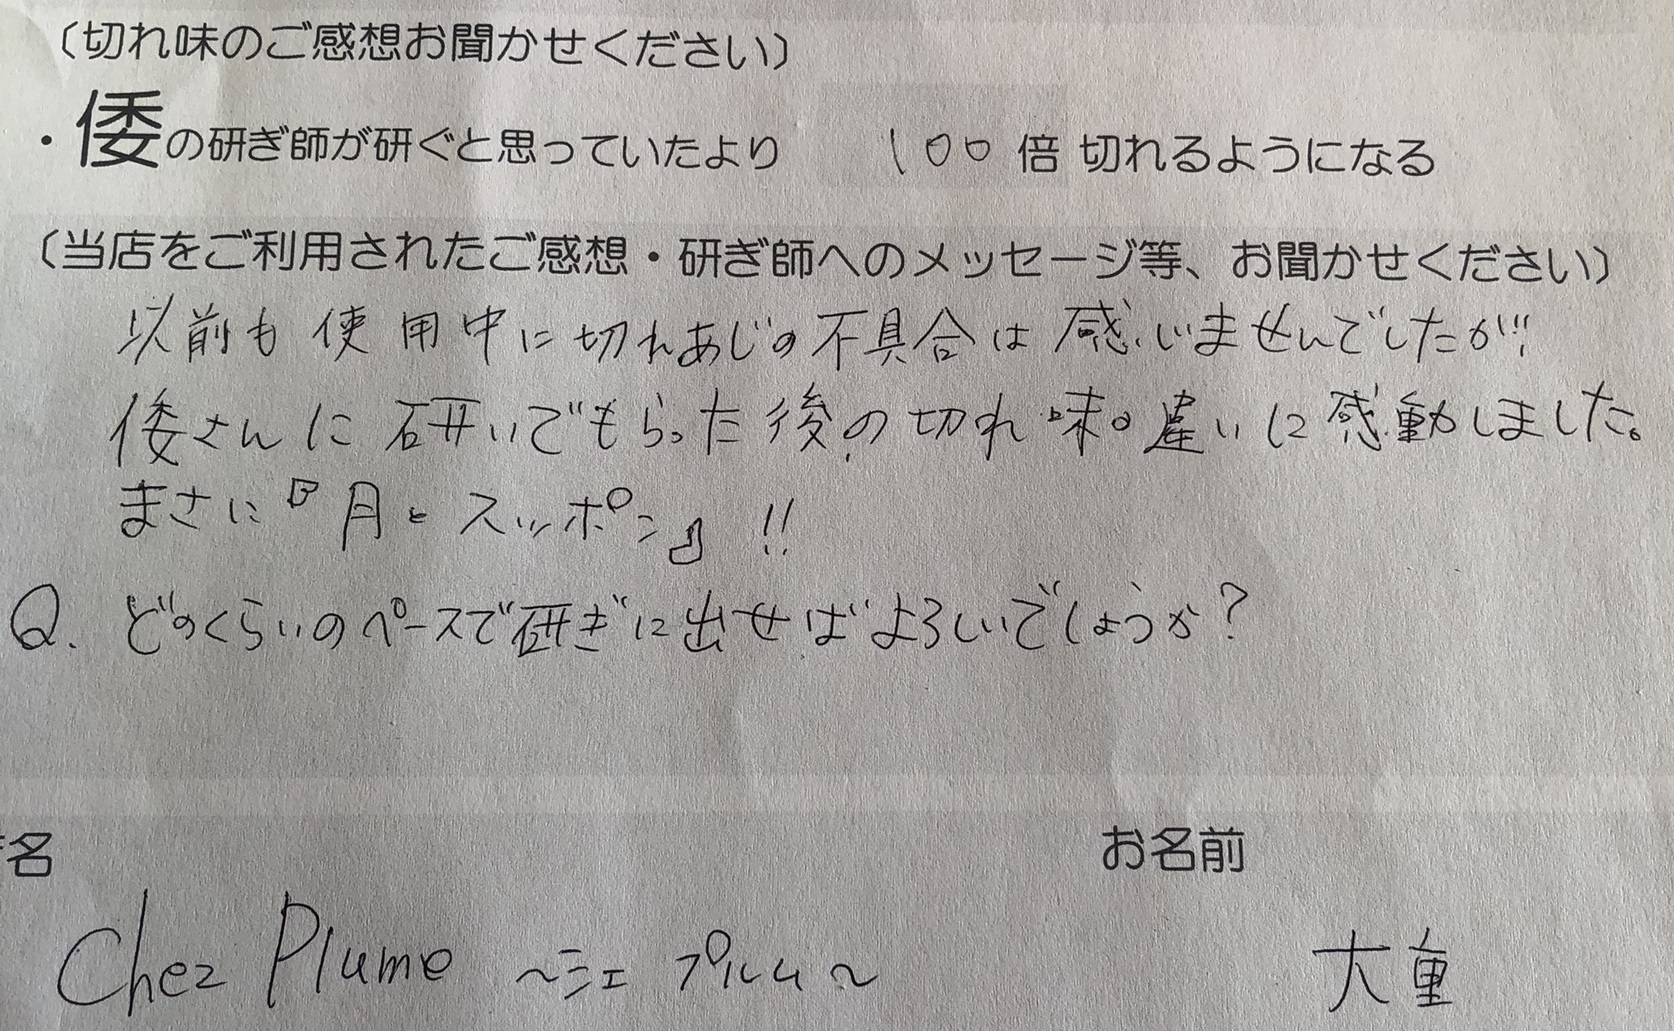 （切れ味のご感想お聞かせください）
・倭の研ぎ師が研ぐと思っていたより 100 倍 切れるようになる
（当店をご利用されたご感想・研ぎ師へのメッセージ等、お聞かせください）
以前も使用中に切れあじの不具合は感じませんでしたが!!
倭さんに研いでもらった後の切れ味の違いに感動しました。
まさに『月とスッポン』!!
Q. どのくらいのペースで研ぎに出せばよろしいでしょうか?
名 お名前
Chez Plume ~シェ プルム~ 大重